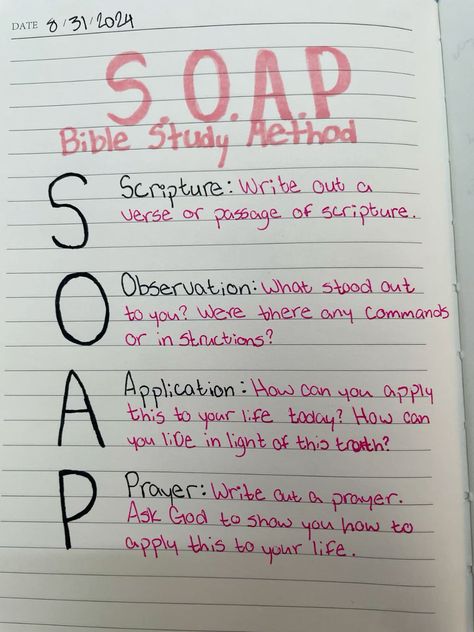 DATE 8/31/2024
S.O.A.P
Bible Study Method
S
Scripture: Write out a
verse or passage of scripture.
O
Observation: What stood out
to you? Were there any commands
or in structions?
A
Application: How can you apply
this to your life today? How can
you live in light of this truth?
P
Prayer: Write out a prayer.
Ask God to show you how to
apply this to your life.